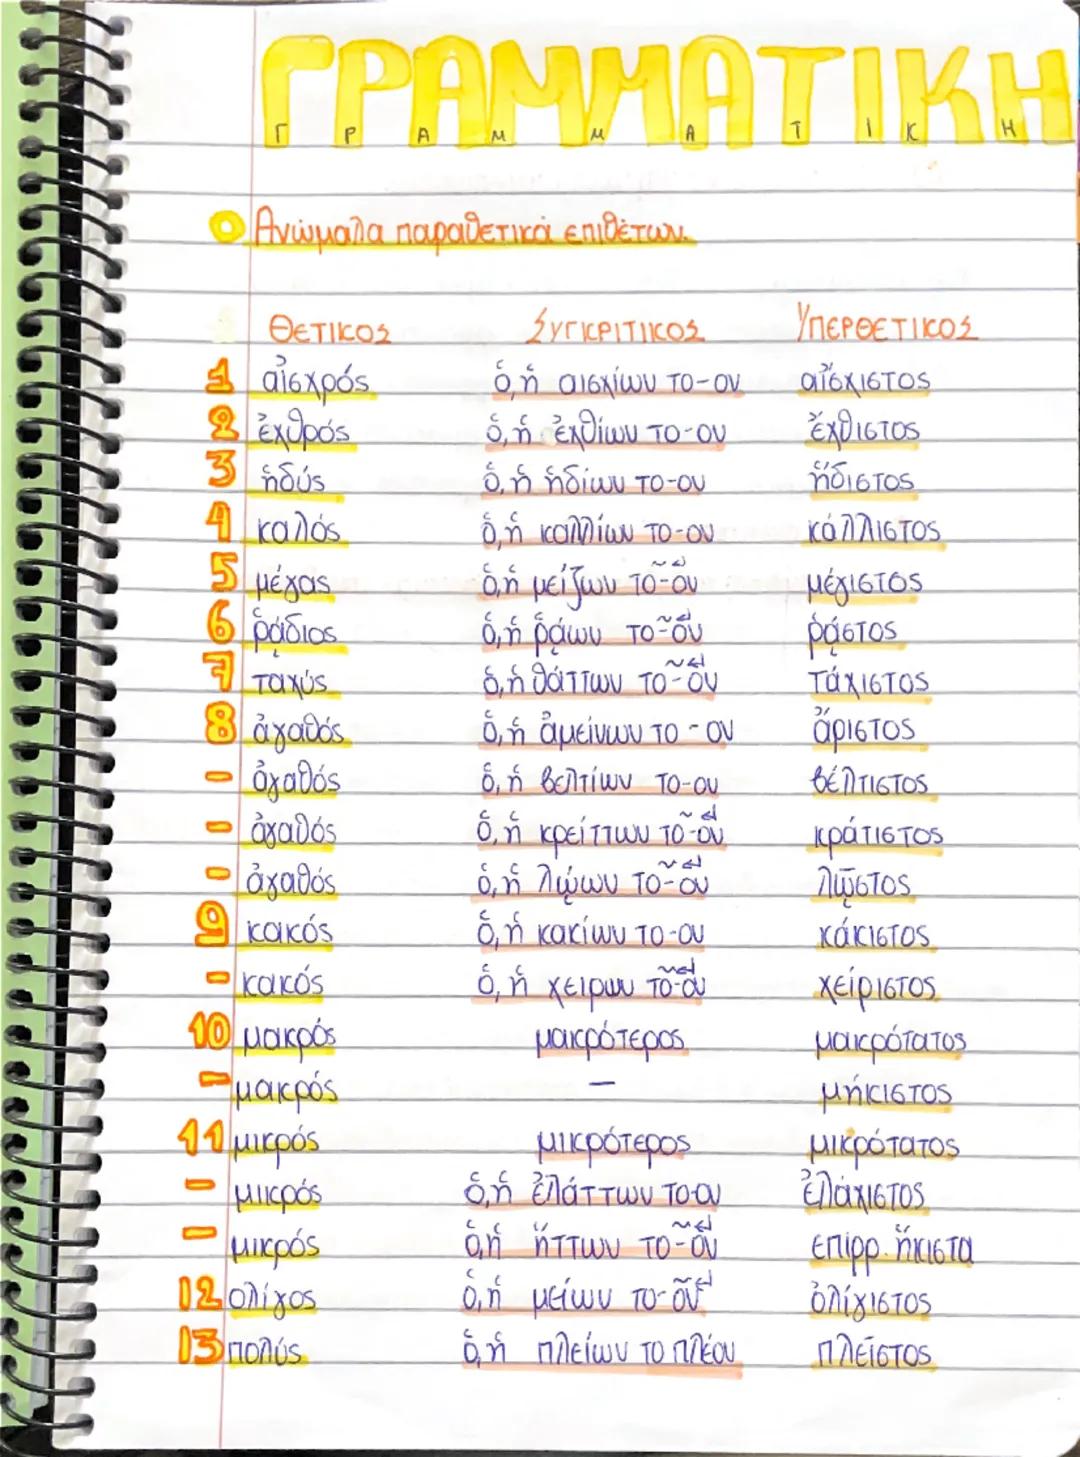 ΓΡΑΜΜΑΤΙΚΗ
Γ Ρ Α Μ Μ Α Τ Ι Κ Η
Ανώμαλα παραθετικά επιθέτων.
ΘΕΤΙΚΟΣ ΣΥΓΚΡΙΤΙΚΟΣ ΥΠΕΡΘΕΤΙΚΟΣ
1 αἰσχρός ὁ,ἡ αισχίων το-ον αἴσχιστος
2 ἐχθρός ὁ,ἡ ἐχθίων το-ον ἔχθιστος
3 ἡδύς ὁ,ἡ ἡδίων το-ον ἥδιστος
4 καλός ὁ,ἡ καλλίων το-ον κάλλιστος
5 μέγας ὁ,ἡ μείζων το-ον μέγιστος
6 ῥάδιος ὁ,ἡ ῥάων το-ον ῥᾴστος
7 ταχύς ὁ,ἡ θάττων το-ον τάχιστος
8 ἀγαθός ὁ,ἡ ἀμείνων το-ον ἄριστος
- ἀγαθός ὁ,ἡ βελτίων το-ον βέλτιστος
- ἀγαθός ὁ,ἡ κρείττων το-ον κράτιστος
- ἀγαθός ὁ,ἡ λῴων το-ον λῷστος
9 κακός ὁ,ἡ κακίων το-ον κάκιστος
- κακός ὁ,ἡ χειρων το-ον χείριστος
10 μακρός μακρότερος μακρότατος
- μακρός - μήκιστος
11 μικρός μικρότερος μικρότατος
- μικρός ὁ,ἡ ἐλάττων το-ον ἐλάχιστος
- μικρός ὁ,ἡ ἥττων το-ον επιρρ. ἥκιστα
12 ολίγος ὁ,ἡ μείων το-ον ὀλίγιστος
13 πολύς ὁ,ἡ πλείων το πλέον πλεῖστος